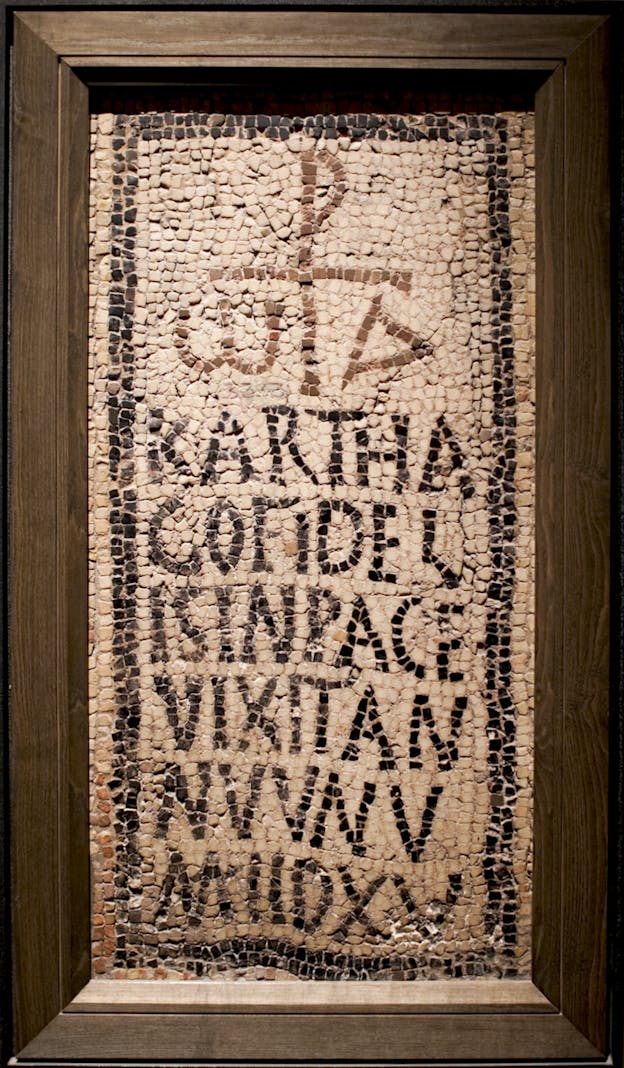 ω A
KARTHA
GOFIDEL
ISINPACE
VIXITAN
NVVNV
MIIIDXV